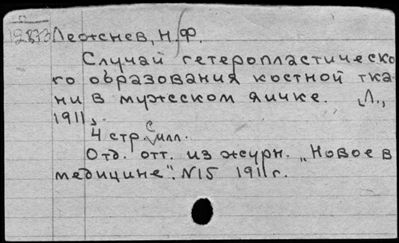 12833 Лежнев, Н.Ф.
Случай гетеропластическо
го образования костной тка
ни в мужском яичке. Л.,
1911.
4 стр. с илл.
Отд. отт. из журн. „Новое в
медицине". N15 1911 г.